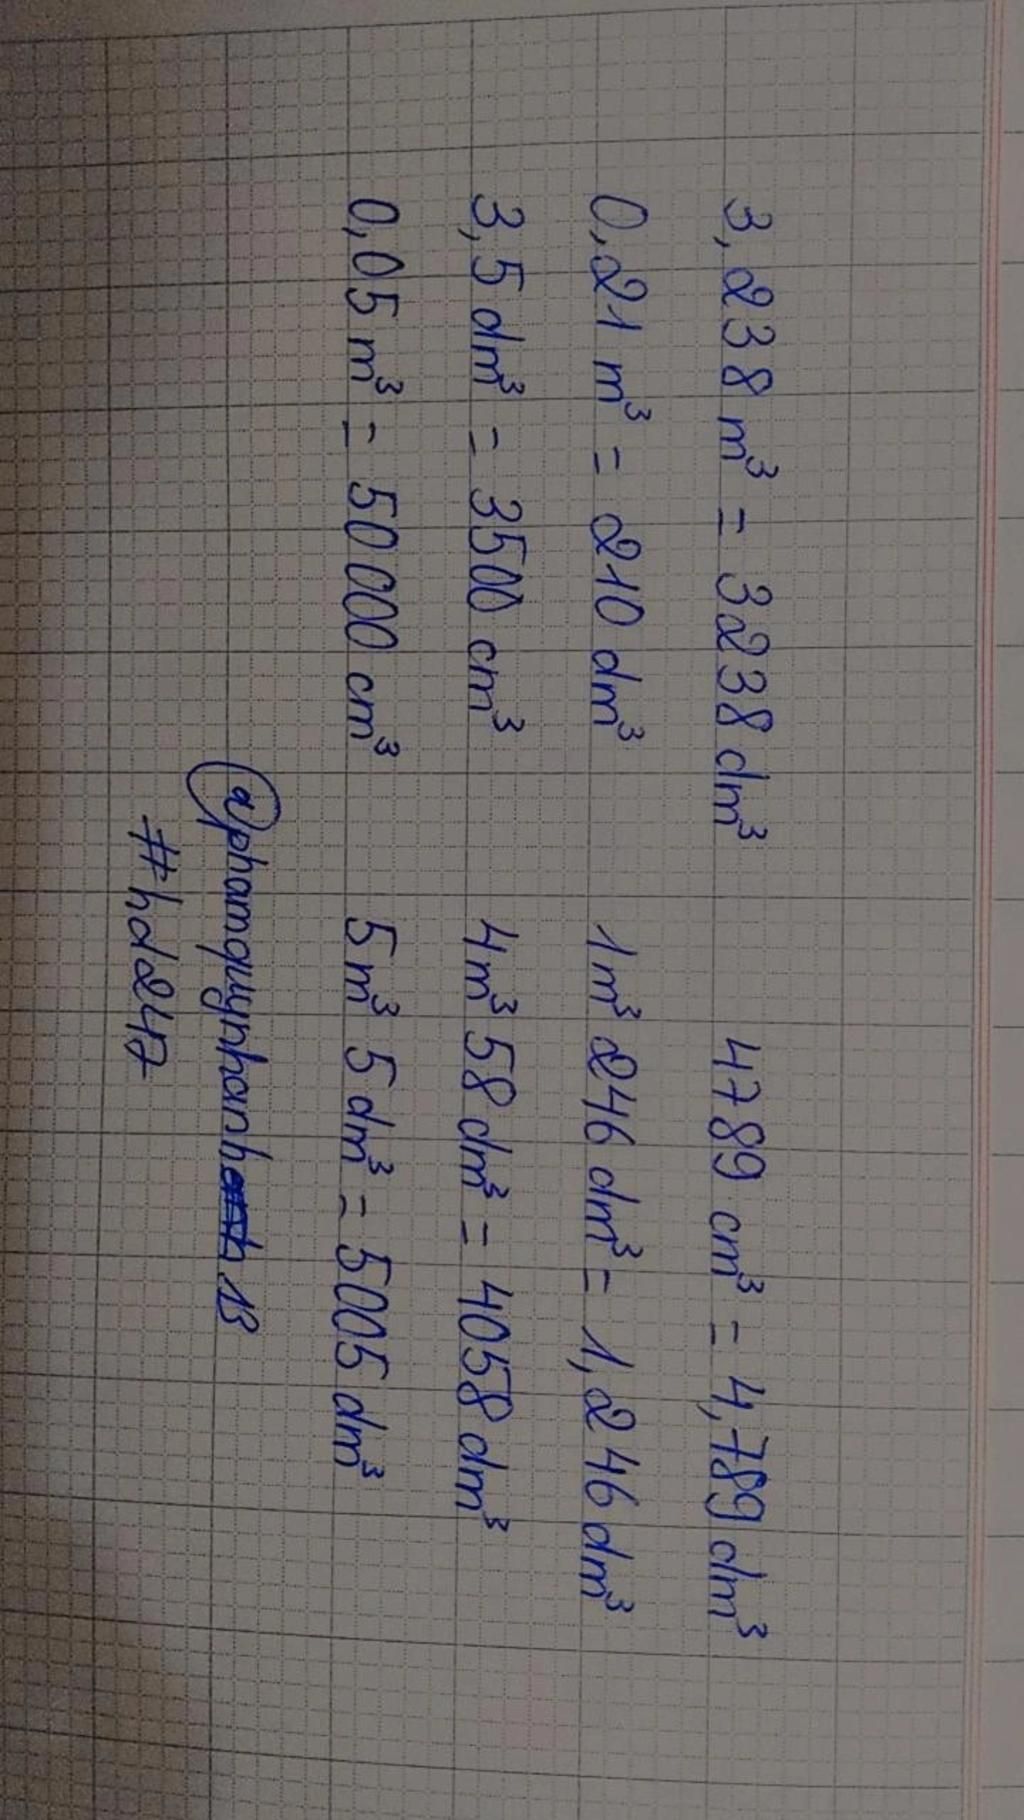 3,238 m³ = 3238 dm³ 4789 cm³ = 4,789 dm³
0,21 m³ = 210 dm³ 1m³ 246 dm³ = 1,246 dm³
3,5 dm³ = 3500 cm³ 4m³ 58 dm³ = 4058 dm³
0,05 m³ = 50 000 cm³ 5 m³ 5 dm³ = 5005 dm³
@phamquynhanh 13
#hd247